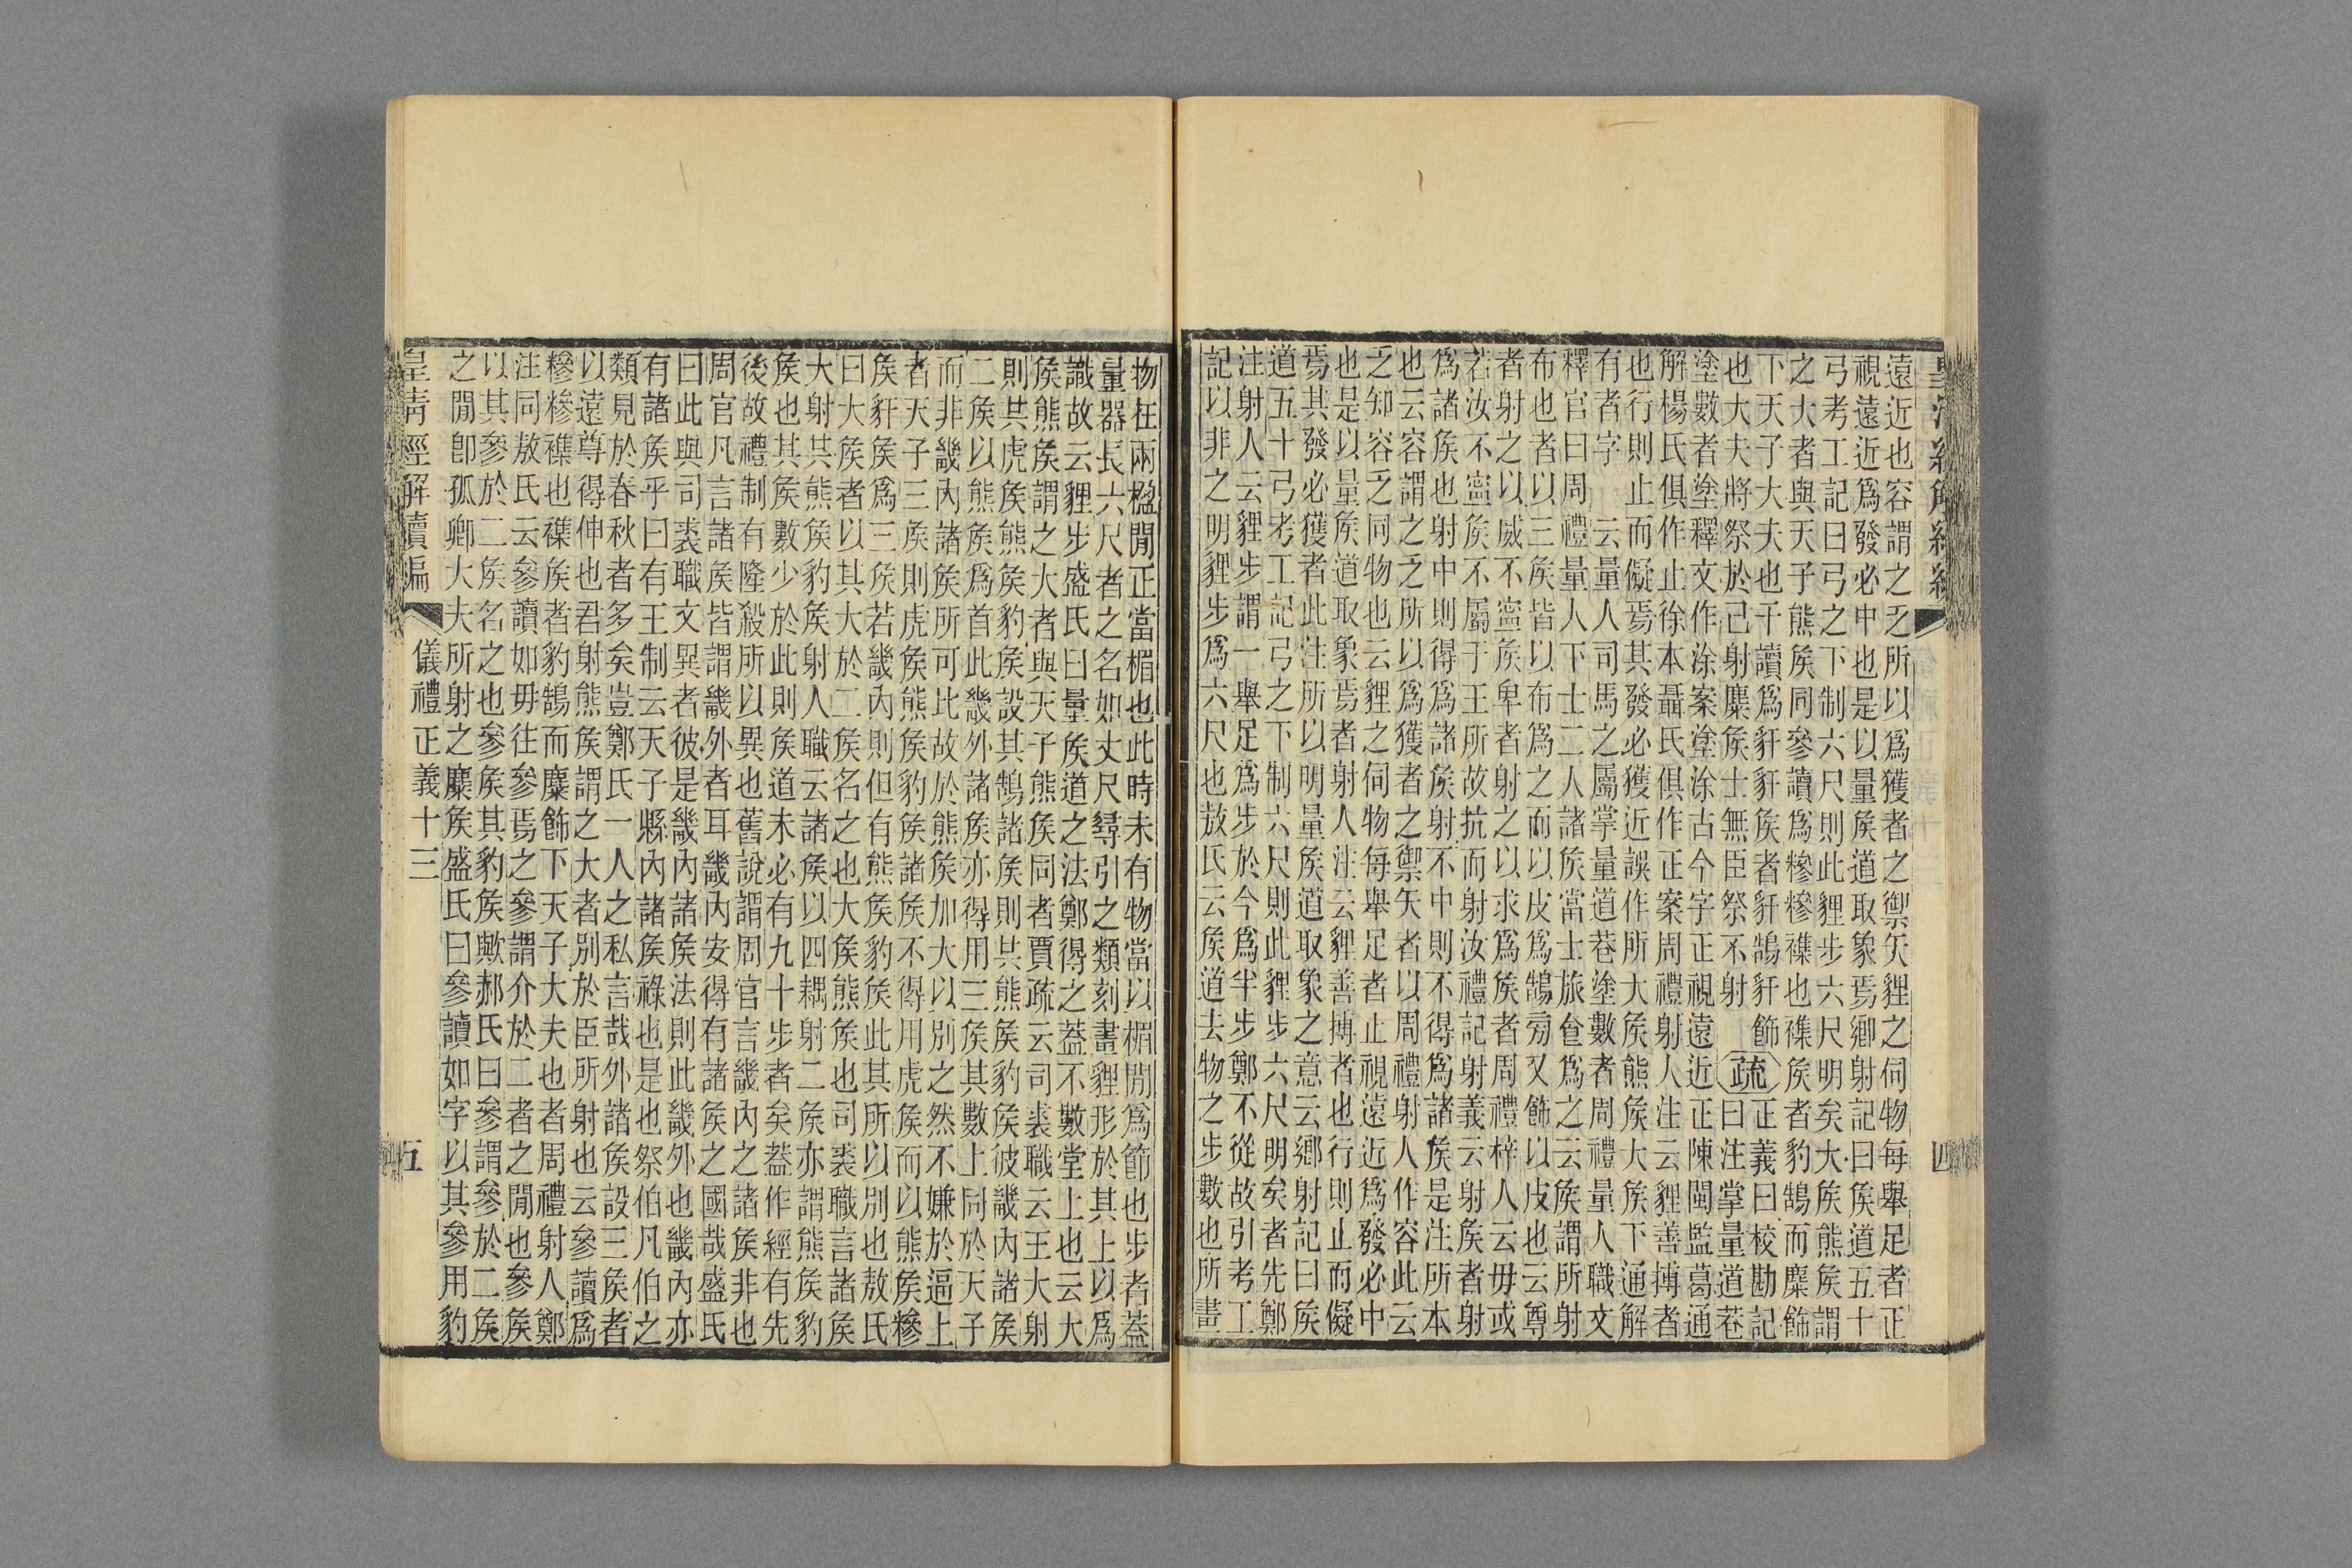 遠近也容謂之乏所以爲獲者之禦矢貍之伺物每舉足者正
視遠近爲發必中也是以量矦道取象焉鄉射記曰矦道五十
弓考工記曰弓之下制六尺則此貍步六尺明矣大矦熊矦謂
之大者與天子熊矦同參讀爲糝糝襍也襍矦者豹鵠而麋飾
下天子大夫也干讀爲豻豻矦者豻鵠豻飾
也大夫將祭於己射麋矦士無臣祭不射
疏
正義曰校勘記
曰注掌量道巷
塗數者塗釋文作涂案塗涂古今字正視遠近正陳閩監葛通
解楊氏俱作止徐本聶氏俱作正案周禮射人注云貍善搏者
也行則止而儗焉其發必獲近誤作所大矦熊矦大矦下通解
有者字　云量人司馬之屬掌量道巷塗數者周禮量人職文
釋官曰周禮量人下士二人諸矦當士旅食爲之云矦謂所射
布也者以三矦皆以布爲之而以皮爲鵠旁又飾以皮也云尊
者射之以威不寍矦卑者射之以求爲矦者周禮梓人云毋或
若汝不寍矦不屬于王所故抗而射汝禮記射義云射矦者射
爲諸矦也射中則得爲諸矦射不中則不得爲諸矦是注所本
也云容謂之乏所以爲獲者之禦矢者以周禮射人作容此云
乏知容乏同物也云貍之伺物每舉足者止視遠近爲發必中
也是以量矦道取象焉者射人注云貍善搏者也行則止而儗
焉其發必獲者此注所以明量矦道取象之意云鄉射記曰矦
道五十弓考工記弓之下制六尺則此貍步六尺明矣者先鄭
注射人云貍步謂一舉足爲步於今爲半步鄭不從故引考工
記以非之明貍步爲六尺也敖氏云矦道去物之步數也所畫
物在兩楹閒正當楣也此時未有物當以楣閒爲節也步者葢
量器長六尺者之名如丈尺尋引之類刻畫貍形於其上以爲
識故云貍步盛氏曰量矦道之法鄭得之葢不數堂上也云大
矦熊矦謂之大者與天子熊矦同者賈疏云司裘職云王大射
則共虎矦熊矦豹矦設其鵠諸矦則共熊矦豹矦彼畿內諸矦
二矦以熊矦爲首此畿外諸矦亦得用三矦其數上同於天子
而非畿內諸矦所可此故於熊矦加大以別之然不嫌於逼上
者天子三矦則虎矦熊矦豹矦諸矦不得用虎矦而以熊矦糝
矦豻矦爲三矦若畿內則但有熊矦豹矦此其所以別也敖氏
曰大矦者以其大於二矦名之也大矦熊矦也司裘職言諸矦
大射共熊矦豹矦射人職云諸矦以四耦射二矦亦謂熊矦豹
矦也其矦數少於此則矦道未必有九十步者矣葢作經有先
後故禮制有隆殺所以異也舊說謂周官言畿內之諸矦非也
周官凡言諸矦皆謂畿外者耳畿內安得有諸矦之國哉盛氏
曰此與司裘職文異者彼是畿內諸矦法則此畿外也畿內亦
有諸矦乎曰有王制云天子縣內諸矦祿也是也祭伯凡伯之
類見於春秋者多矣豈鄭氏一人之私言哉外諸矦設三矦者
以遠尊得伸也君射熊矦謂之大者別於臣所射也云參讀爲
糝糝襍也襍矦者豹鵠而麋飾下天子大夫也者周禮射人鄭
注同敖氏云參讀如毋往參焉之參謂介於二者之閒也參矦
以其參於二矦名之也參矦其豹矦歟郝氏曰參謂參於二矦
之閒卽孤卿大夫所射之麋矦盛氏曰參讀如字以其參用豹
皇清經解續編　儀禮正義十三　五